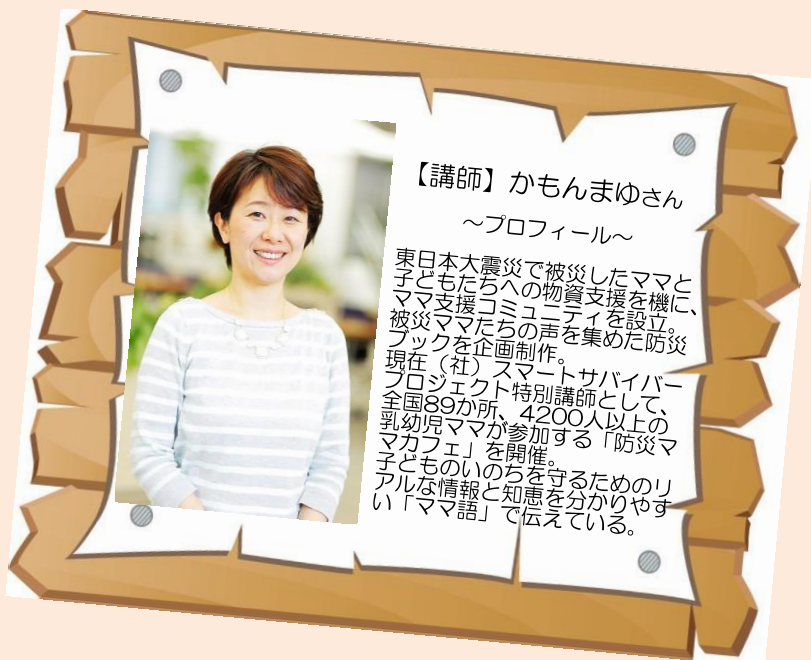 【講師】かもんまゆさん
～プロフィール～
東日本大震災で被災したママと
子どもたちへの物資支援を機に、
ママ支援コミュニティを設立。
被災ママたちの声を集めた防災
ブックを企画制作。
現在（社）スマートサバイバー
プロジェクト特別講師として、
全国89か所、4200人以上の
乳幼児ママが参加する「防災マ
マカフェ」を開催。
子どものいのちを守るためのリ
アルな情報と知恵を分かりやす
い「ママ語」で伝えている。